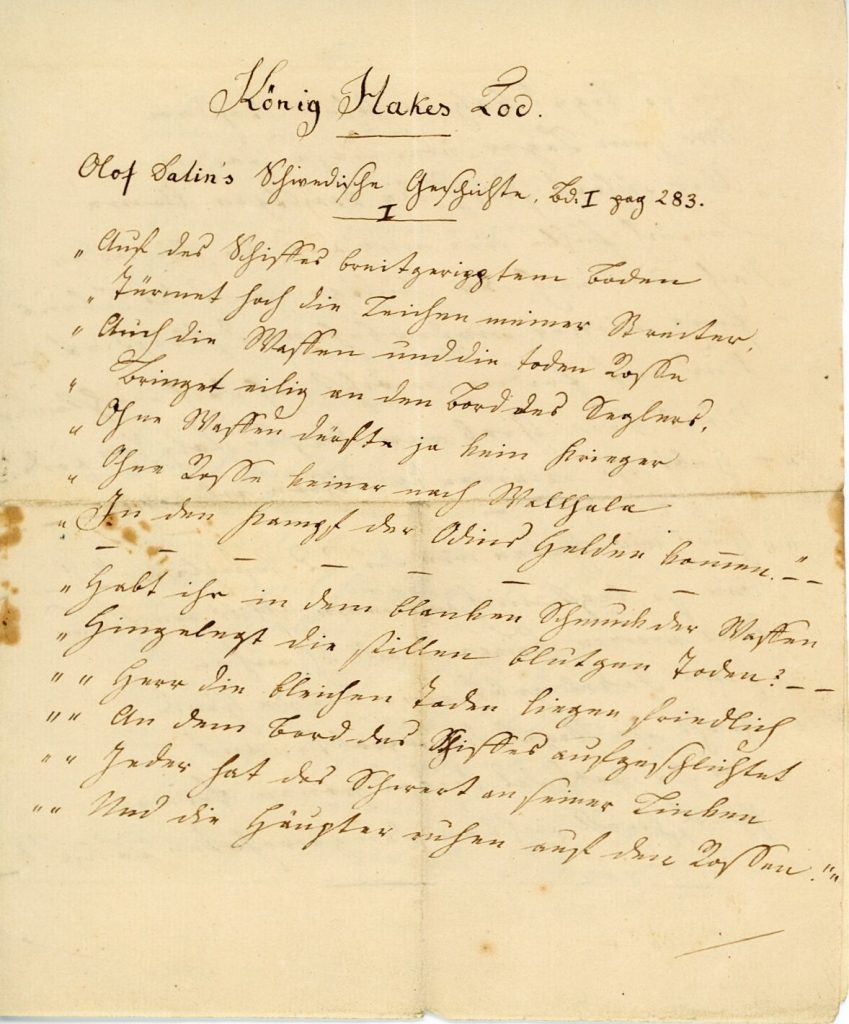 König Hakes Tod.
Olof Dalin's Schwedische Geschichte, Bd. I pag 283.
I
„Auf des Schiffes breitgeripptem Boden
„Türmet hoch die Leichen meiner Streiter,
„Auch die Waffen und die toden Rosse
„Bringet eilig an den Bord des Seglers,
„Ohne Waffen dürfte ja kein Krieger
„Ohne Rosse keiner nach Wallhala
„In den Kampf der Odins Helden kom̅en." – –
– – – – – – – –
„Habt ihr in dem blanken Schmuck der Waffen
„Hingelegt die stillen blutgen Toden? – –
„„Herr die bleichen Toden liegen friedlich
„„An dem Bord des Schiffes aufgeschlichtet
„„Jeder hat das Schwert an seiner Linken
„„Und die Häupter ruhen auf den Rossen.""